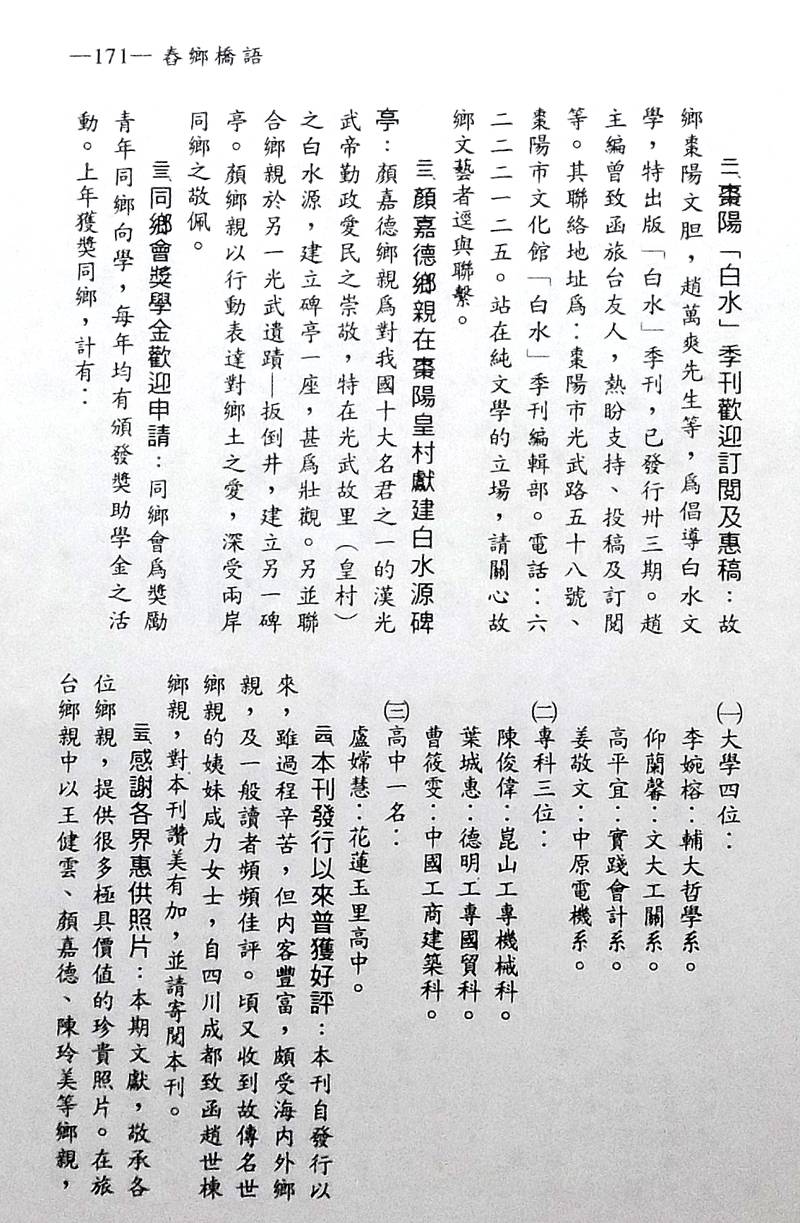 —171— 舂鄉橋語
二一、棗陽「白水」季刊歡迎訂閱及惠稿：故
鄉棗陽文胆，趙萬爽先生等，爲倡導白水文
學，特出版「白水」季刊，已發行卅三期。趙
主編曾致函旅台友人，熱盼支持、投稿及訂閱
等。其聯絡地址爲：棗陽市光武路五十八號、
棗陽市文化館「白水」季刊編輯部。電話：六
二二二一二五。站在純文學的立場，請關心故
鄉文藝者逕與聯繫。
二二、顏嘉德鄉親在棗陽皇村獻建白水源碑
亭：顏嘉德鄉親爲對我國十大名君之一的漢光
武帝勤政愛民之崇敬，特在光武故里（皇村）
之白水源，建立碑亭一座，甚爲壯觀。另並聯
合鄉親於另一光武遺蹟—扳倒井，建立另一碑
亭。顏鄉親以行動表達對鄉土之愛，深受兩岸
同鄉之敬佩。
二三、同鄉會獎學金歡迎申請：同鄉會爲獎勵
青年同鄉向學，每年均有頒發獎助學金之活
動。上年獲獎同鄉，計有：
㈠大學四位：
李婉榕：輔大哲學系。
仰蘭馨：文大工關系。
高平宜：實踐會計系。
姜敬文：中原電機系。
㈡專科三位：
陳俊偉：崑山工專機械科。
葉城惠：德明工專國貿科。
曹筱雯：中國工商建築科。
㈢高中一名：
盧嫦慧：花蓮玉里高中。
二四、本刊發行以來普獲好評：本刊自發行以
來，雖過程辛苦，但內客豐富，頗受海內外鄉
親，及一般讀者頻頻佳評。頃又收到故傳名世
鄉親的姨妹咸力女士，自四川成都致函趙世棟
鄉親，對本刊讚美有加，並請寄閱本刊。
二五、感謝各界惠供照片：本期文獻，敬承各
位鄉親，提供很多極具價值的珍貴照片。在旅
台鄉親中以王健雲、顏嘉德、陳玲美等鄉親，